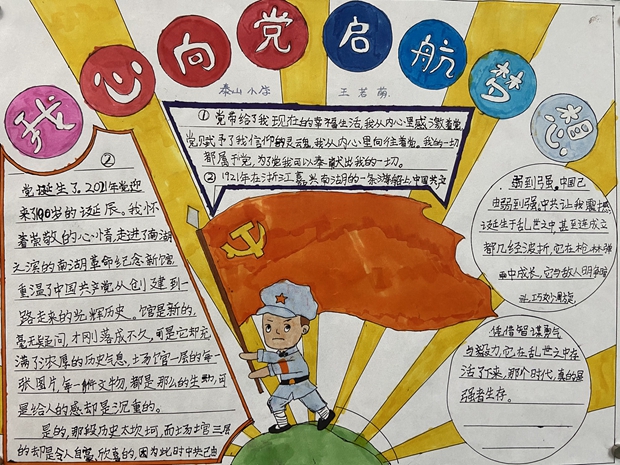 我心向党启航梦想
泰山小学 王若萌
① 党带给了我现在的幸福生活，我从内心里感激着党，
党赋予了我信仰的灵魂，我从内心里向往着党，我的一切
都属于党，为了党我可以奉献出我的一切。
② 1921年在浙江嘉兴南湖的一条游船上中国共产
②
党诞生了。2021年党迎
来100岁的诞辰。我怀
着崇敬的心情，走进了南湖
之滨的南湖革命纪念新馆
重温了中国共产党从创建到一
路走来的光辉历史。馆是新的，
毫无疑问，才刚落成不久，可是它却充
满了浓厚的历史气息，
一层的每一
张图片，每一件文物，都是那么的生
可
是给人的感却是沉重的。
是的，那段历史太坎坷，而
三层
的却是令人自豪、欣喜的，因为此时中共已由
弱到强，中国已
由弱到强，中共让我震撼
诞生于乱世之中，甚至连成立
都几经波折，它在枪林弹
中成长，它与敌人明争暗
斗，巧妙周旋
凭借智谋勇气
与毅力，它在乱世之中存
活了下来，那个时代，真的是
强者生存。